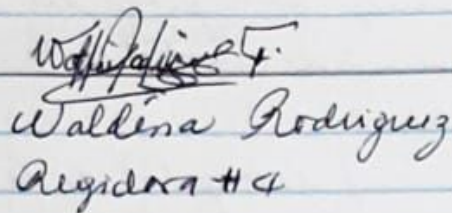 Waldina Rodriguez
Regidora #4